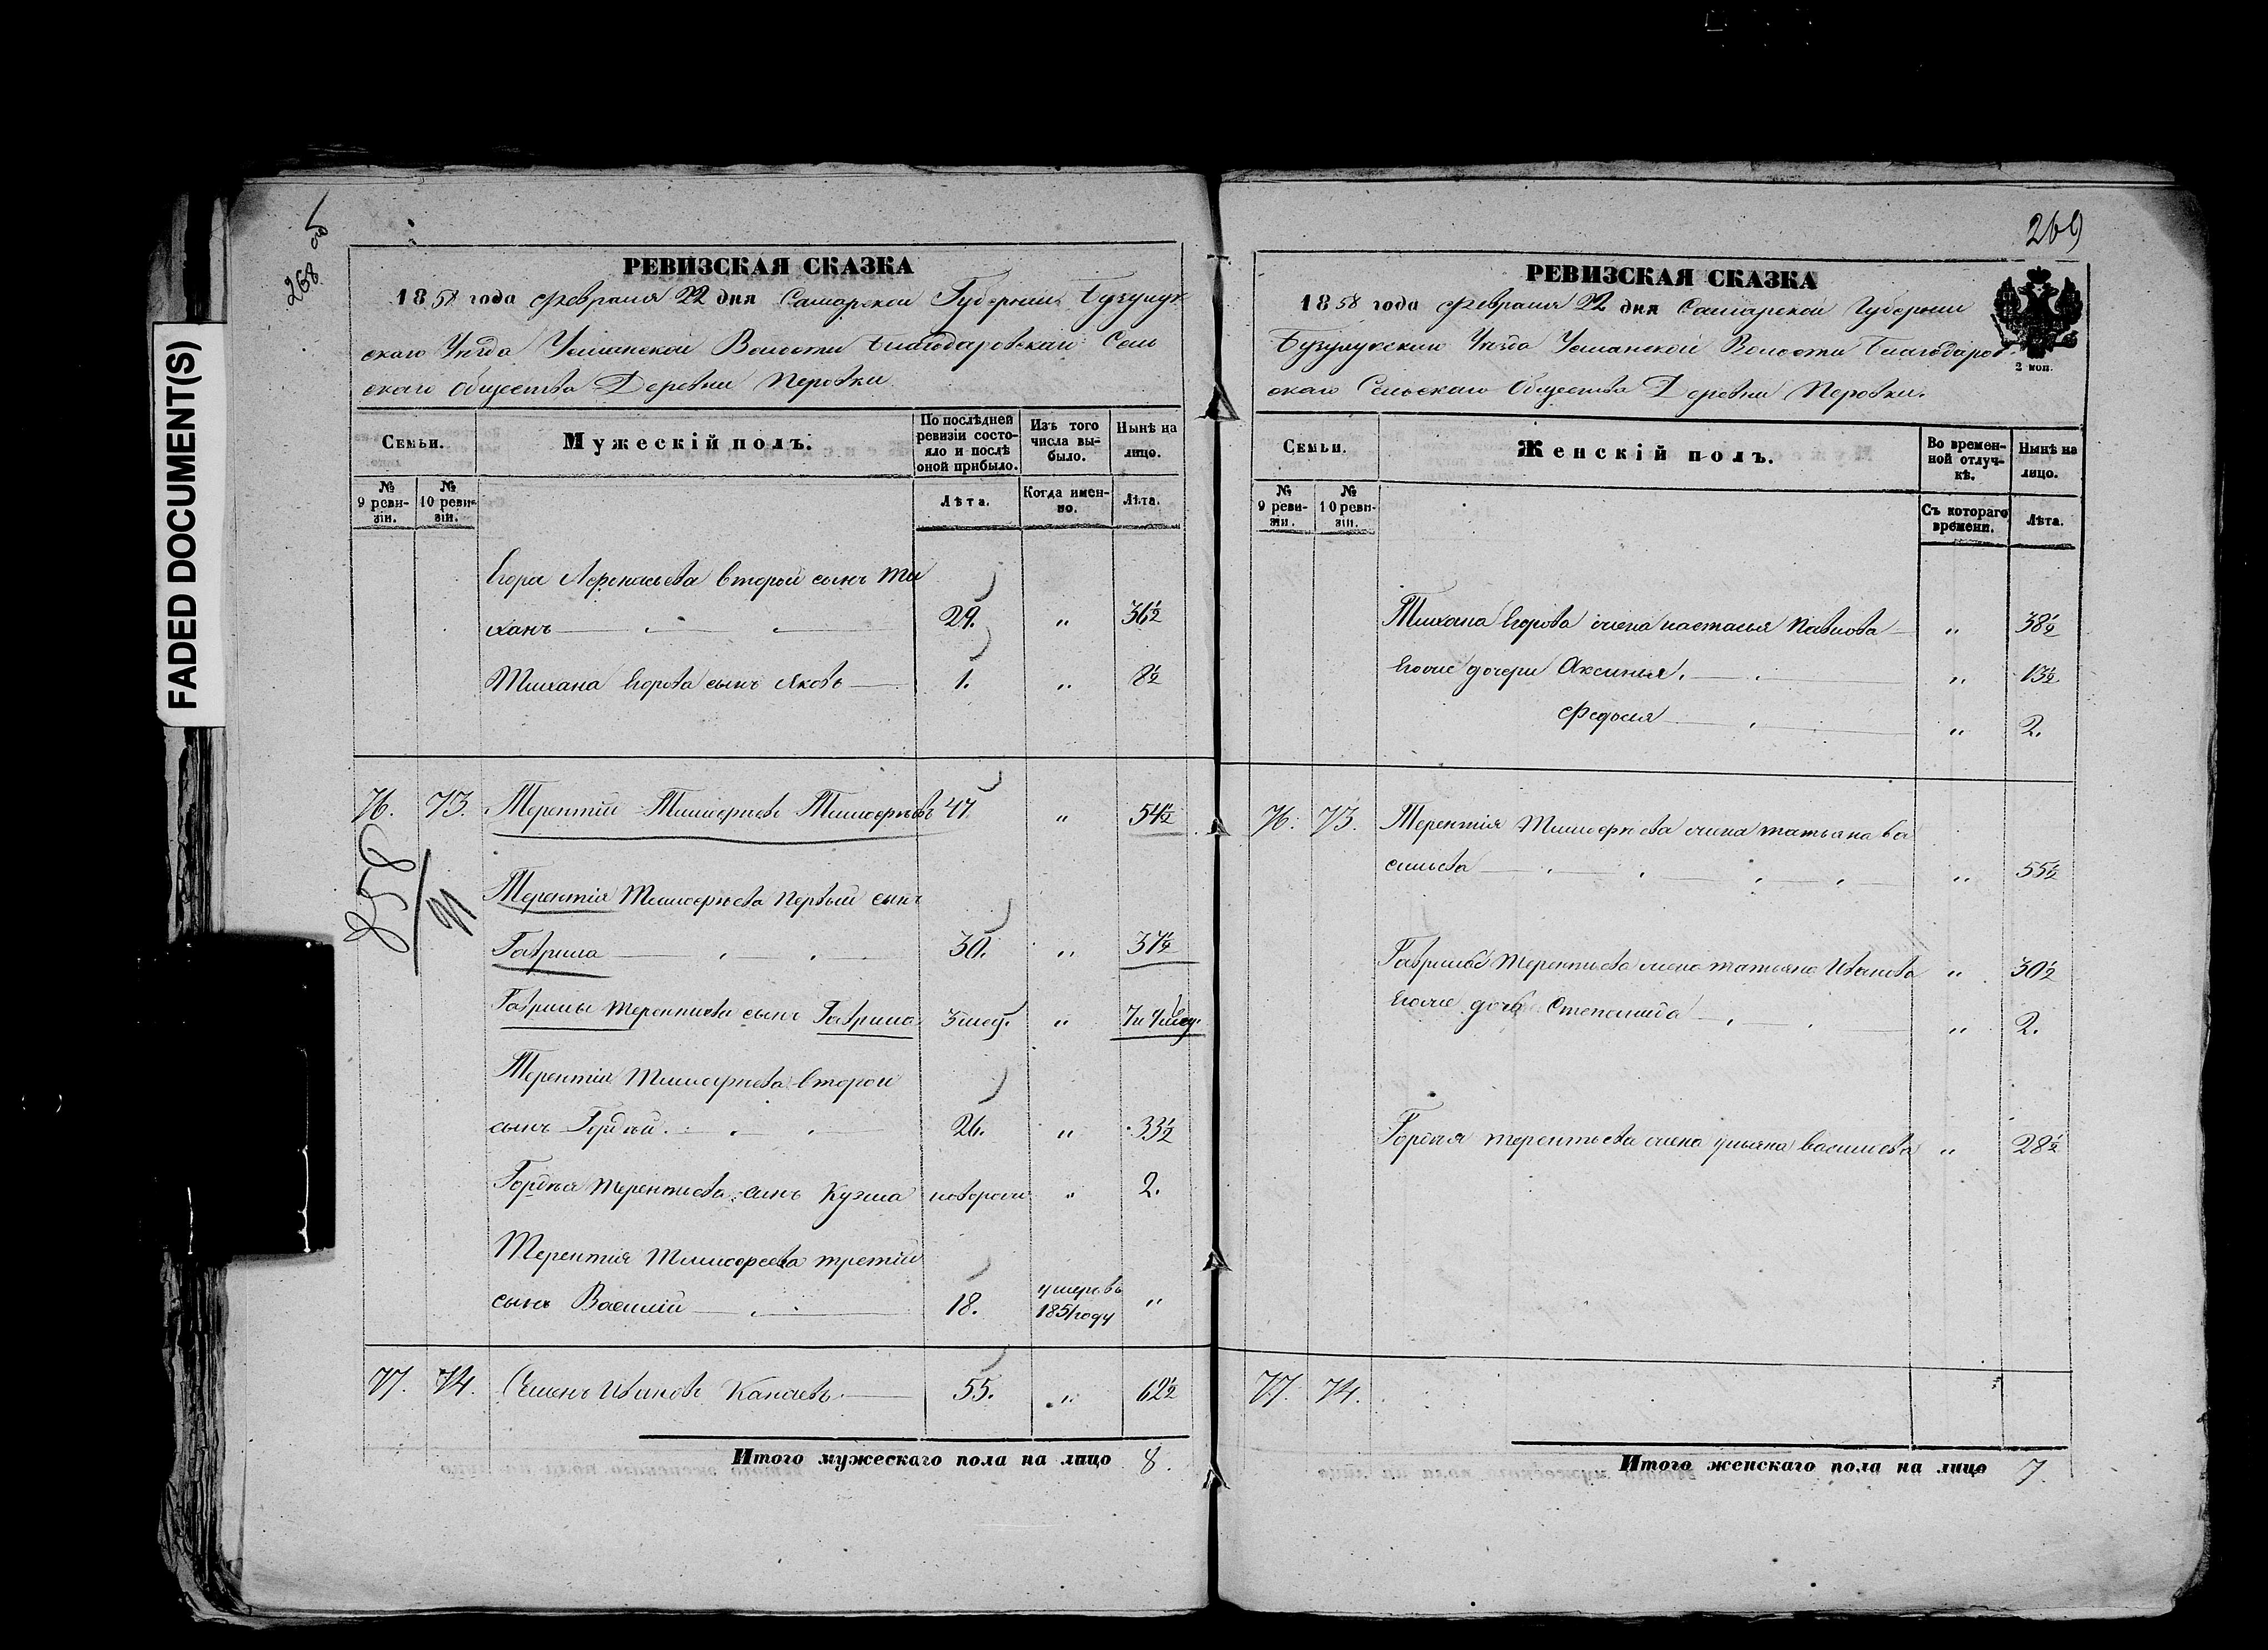 FADED DOCUMENT(S)
268
РЕВИЗСКАЯ СКАЗКА
1858 года Февраля 22 дня Самарской Губернии Бузулук
скаго Уезда Усманской Волости Благодаровскаго Сель
скаго Общества Деревни Перовки
Семьи.
Мужескій полъ.
По послѣдней
ревизіи состо-
яло и послѣ
оной прибыло.
Изъ того
числа вы-
было.
Нынѣ на
лицо.
№
9 реви-
зіи.
№
10 реви-
зіи.
Лѣта.
Когда имен-
но.
Лѣта.
Егора Афонасьева второй сынъ Ти
ханъ 29. " 36½
Тихана Егорова сынъ Яковъ 1. " 8½
76. 73. Терентій Тимофеевъ Тимофеевъ 47. " 54½
Терентія Тимофеева первый сынъ
Гаврила 30. " 37½
Гаврилы Терентьева сынъ Гаврила 3 мес. "
Терентія Тимофеева второй
сынъ Гордей. 26. " 33½
Гордея Терентьева сынъ Кузма новорож " 2.
Терентія Тимофеева третій
сынъ Василій 18. умеръ въ 1851 году "
77. 74. Семенъ Ивановъ Канаевъ 55. " 62½
Итого мужескаго пола на лицо 8.
269
РЕВИЗСКАЯ СКАЗКА
1858 года Февраля 22 дня Самарской Губернии
Бузулукскаго Уезда Усманской Волости Благодаров
скаго Сельскаго Общества Деревни Перовки.
2 коп.
Семьи.
Женскій полъ.
Во времен-
ной отлуч-
кѣ.
Нынѣ на
лицо.
№
9 реви-
зіи.
№
10 реви-
зіи.
Съ котораго
времени.
Лѣта.
Тихана Егорова жена Настасья Павлова " 38½
Егоже дочери Аксинья. " 13½
Федосья " 2.
76. 73. Терентія Тимофеева жена Татьяна Ва
сильева " 55½
Гаврилы Терентьева жена Татьяна Иванова " 30½
Егоже дочь Степанида " 2.
Гордея Терентьева жена Ульяна Васильева " 28½
77. 74.
Итого женскаго пола на лицо 7.